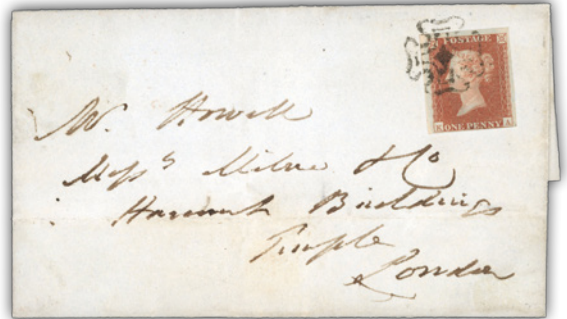 POSTAGE
ONE PENNY
Mr. Howell
Messrs Milne & Co
Harcourt Buildings
Temple
London